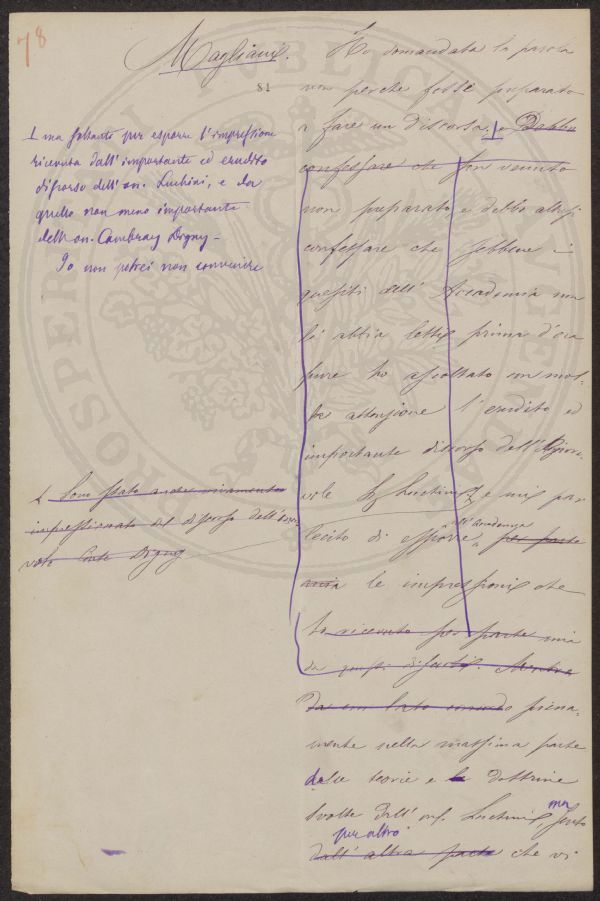 78
Magliani.
81
Ho domandata la parola
non perché fossi preparato
a fare un discorso. Debbo
confessare che son venuto
non preparato e debbo altresì
confessare che sebbene i
quesiti dell' Accademia non
li abbia letti prima d'ora
pure ho ascoltato con mol-
ta attenzione l'erudito ed
importante discorso dell' Onore-
vole Luchini e mi per
lecito di esporre all' Accademia per parte
mia le impressioni che
ho ricevuto per parte mia
da questi discorsi. Mentre
da un lato convengo piena-
mente nella massima parte
delle teorie e le dottrine
svolte dall' on. Luchini, ma sento
per altro
dall' altra parte che vi
ma soltanto per esporre l'impressione
ricevuta dall'importante ed erudito
discorso dell' on. Luchini, e da
quello non meno importante
dell' on. Cambray Digny –
Io non potrei non convenire
Sono stato anche vivamente
impressionato del discorso dell' Onore-
vole Conte Digny